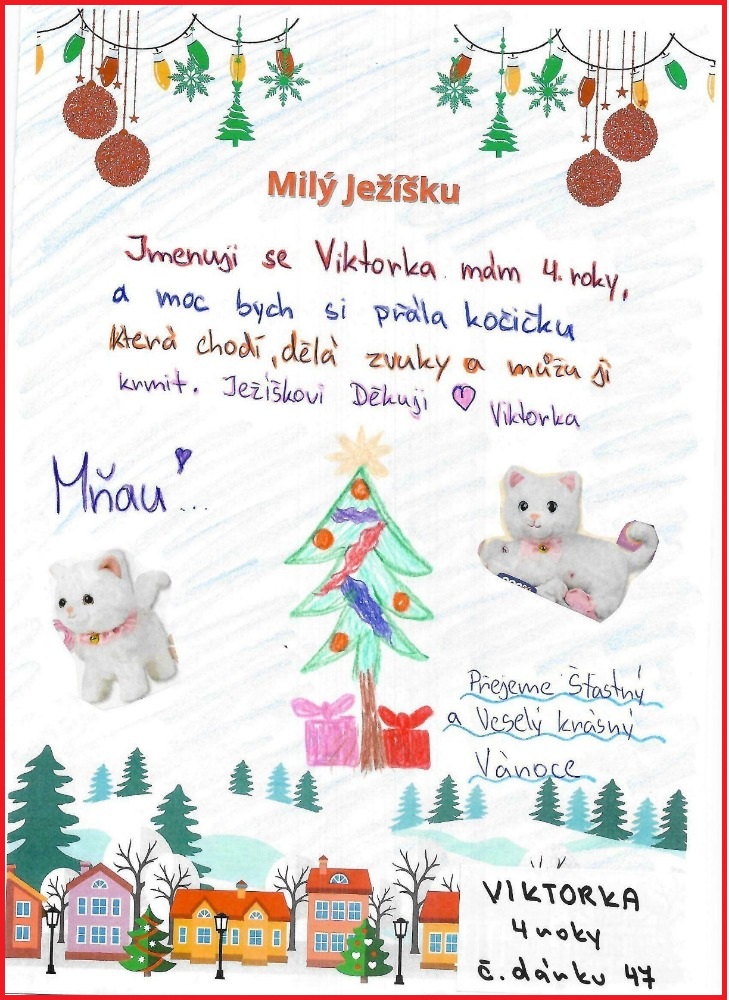 Milý Ježíšku
Jmenuji se Viktorka mám 4. roky,
a moc bych si přála kočičku
která chodí, dělá zvuky a můžu ji
krmit. Ježíškovi Děkuji Viktorka
Mňau...
Přejeme Šťastný
a Veselý krásný
Vánoce
VIKTORKA
4 roky
č. dárku 47